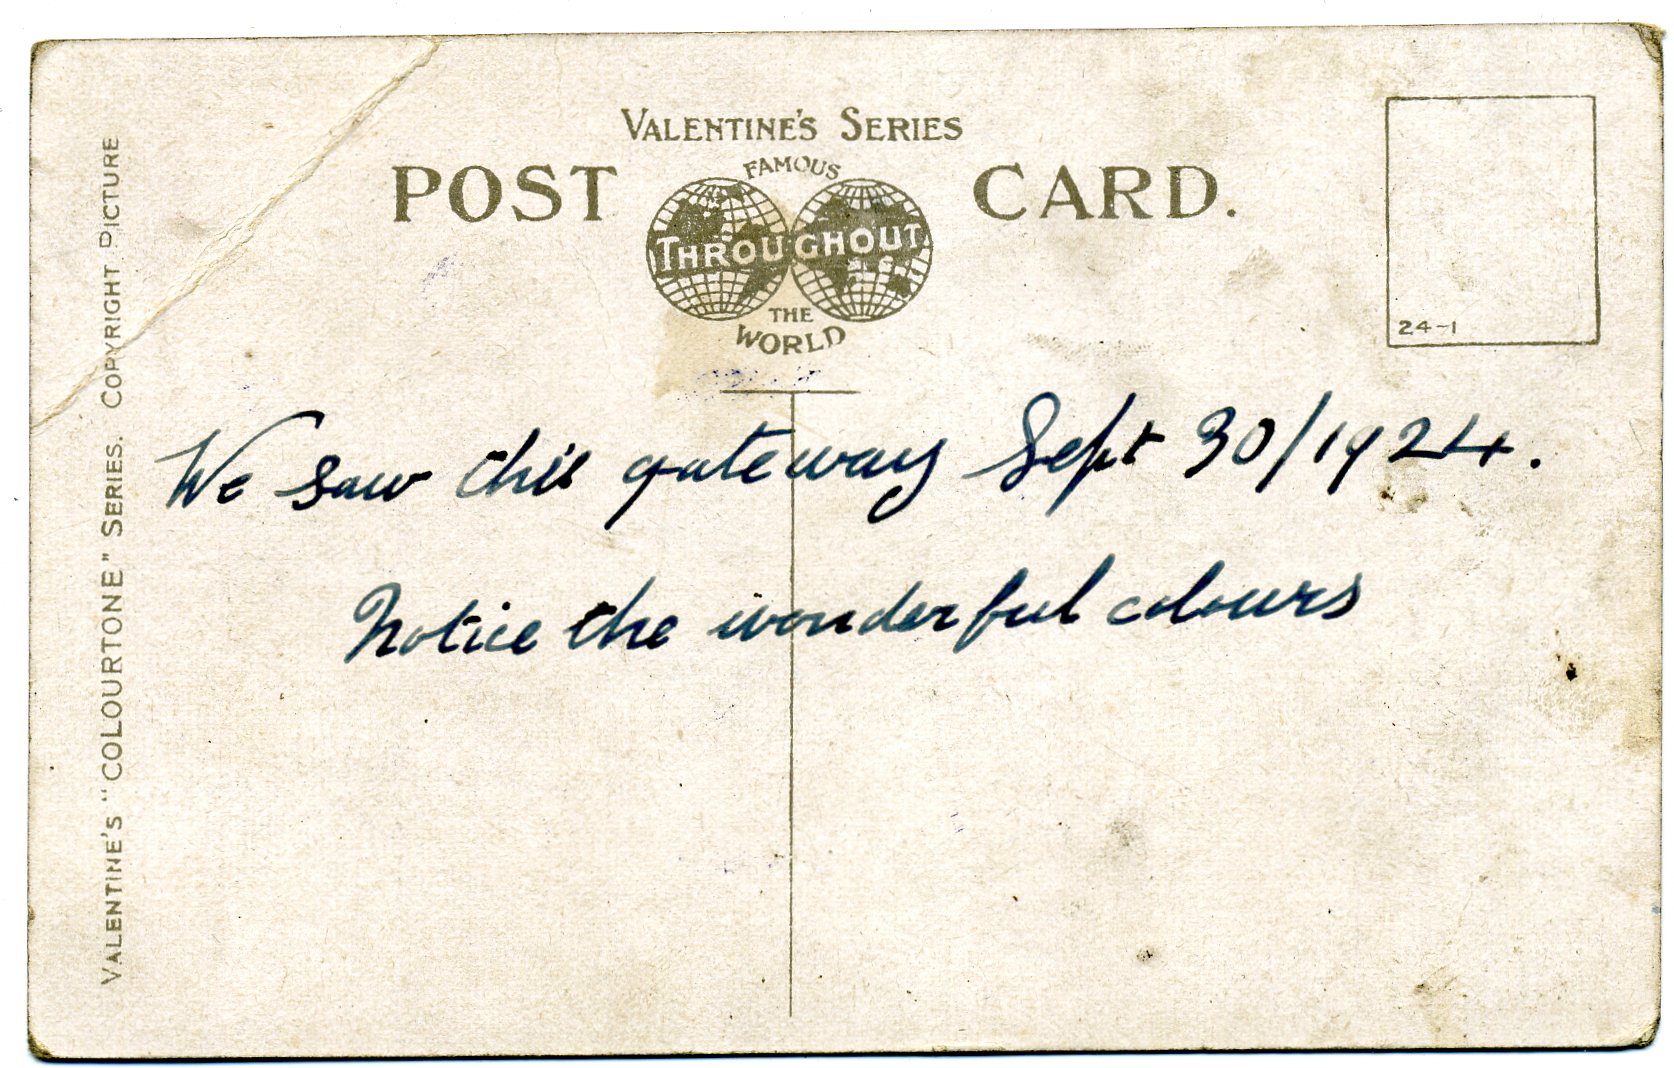 VALENTINE'S SERIES
FAMOUS
POST CARD.
THROUGHOUT
THE
WORLD
24-1
We saw this gateway Sept 30/1924.
Notice the wonderful colours
VALENTINE'S "COLOURTONE" SERIES. COPYRIGHT PICTURE